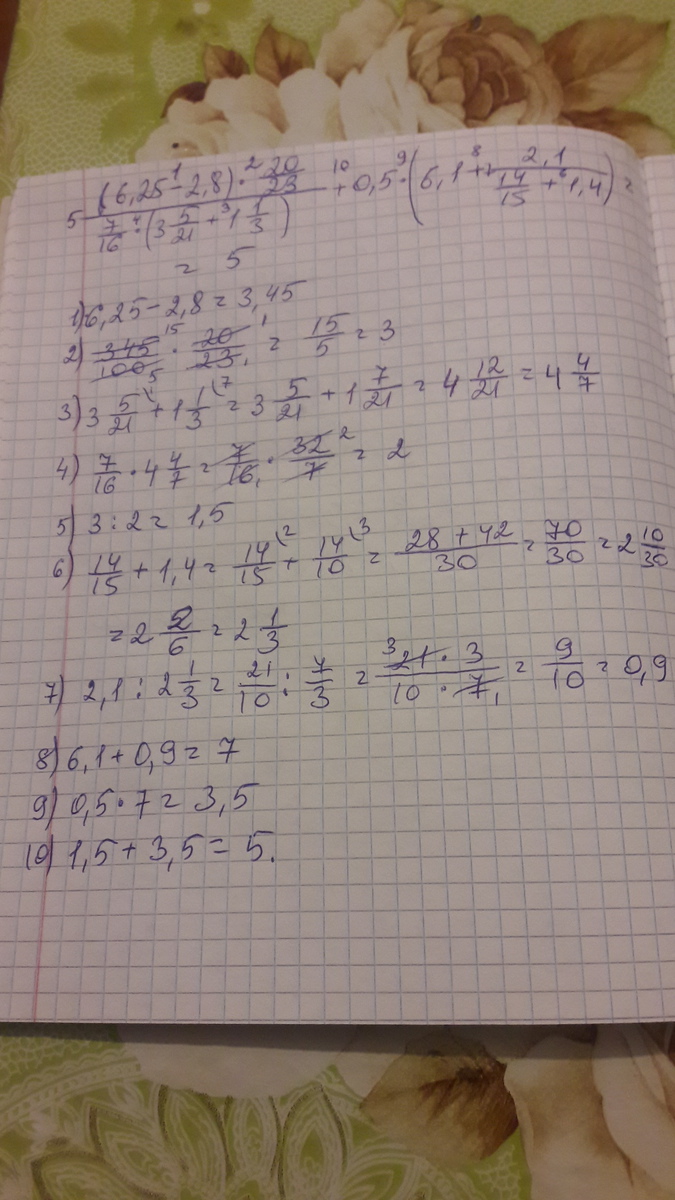 5 ((6,25 -¹ 2,8) ·² 20/23) / (7/16 ·⁴ (3 5/21 +³ 1 1/3)) +¹⁰ 0,5 ·⁹ (6,1 +⁸ ⁷ 2,1 / (14/15 +⁶ 1,4)) =
= 5
1) 6,25 - 2,8 = 3,45
2) 345/100 · 20/23 = 15/5 = 3
3) 3 5/21 + 1 1/3 = 3 5/21 + 1 7/21 = 4 12/21 = 4 4/7
4) 7/16 · 4 4/7 = 7/16 · 32/7 = 2
5) 3 : 2 = 1,5
6) 14/15 + 1,4 = 14/15 + 14/10 = (28 + 42)/30 = 70/30 = 2 10/30
= 2 2/6 = 2 1/3
7) 2,1 : 2 1/3 = 21/10 : 7/3 = (21 · 3)/(10 · 7) = 9/10 = 0,9
8) 6,1 + 0,9 = 7
9) 0,5 · 7 = 3,5
10) 1,5 + 3,5 = 5.